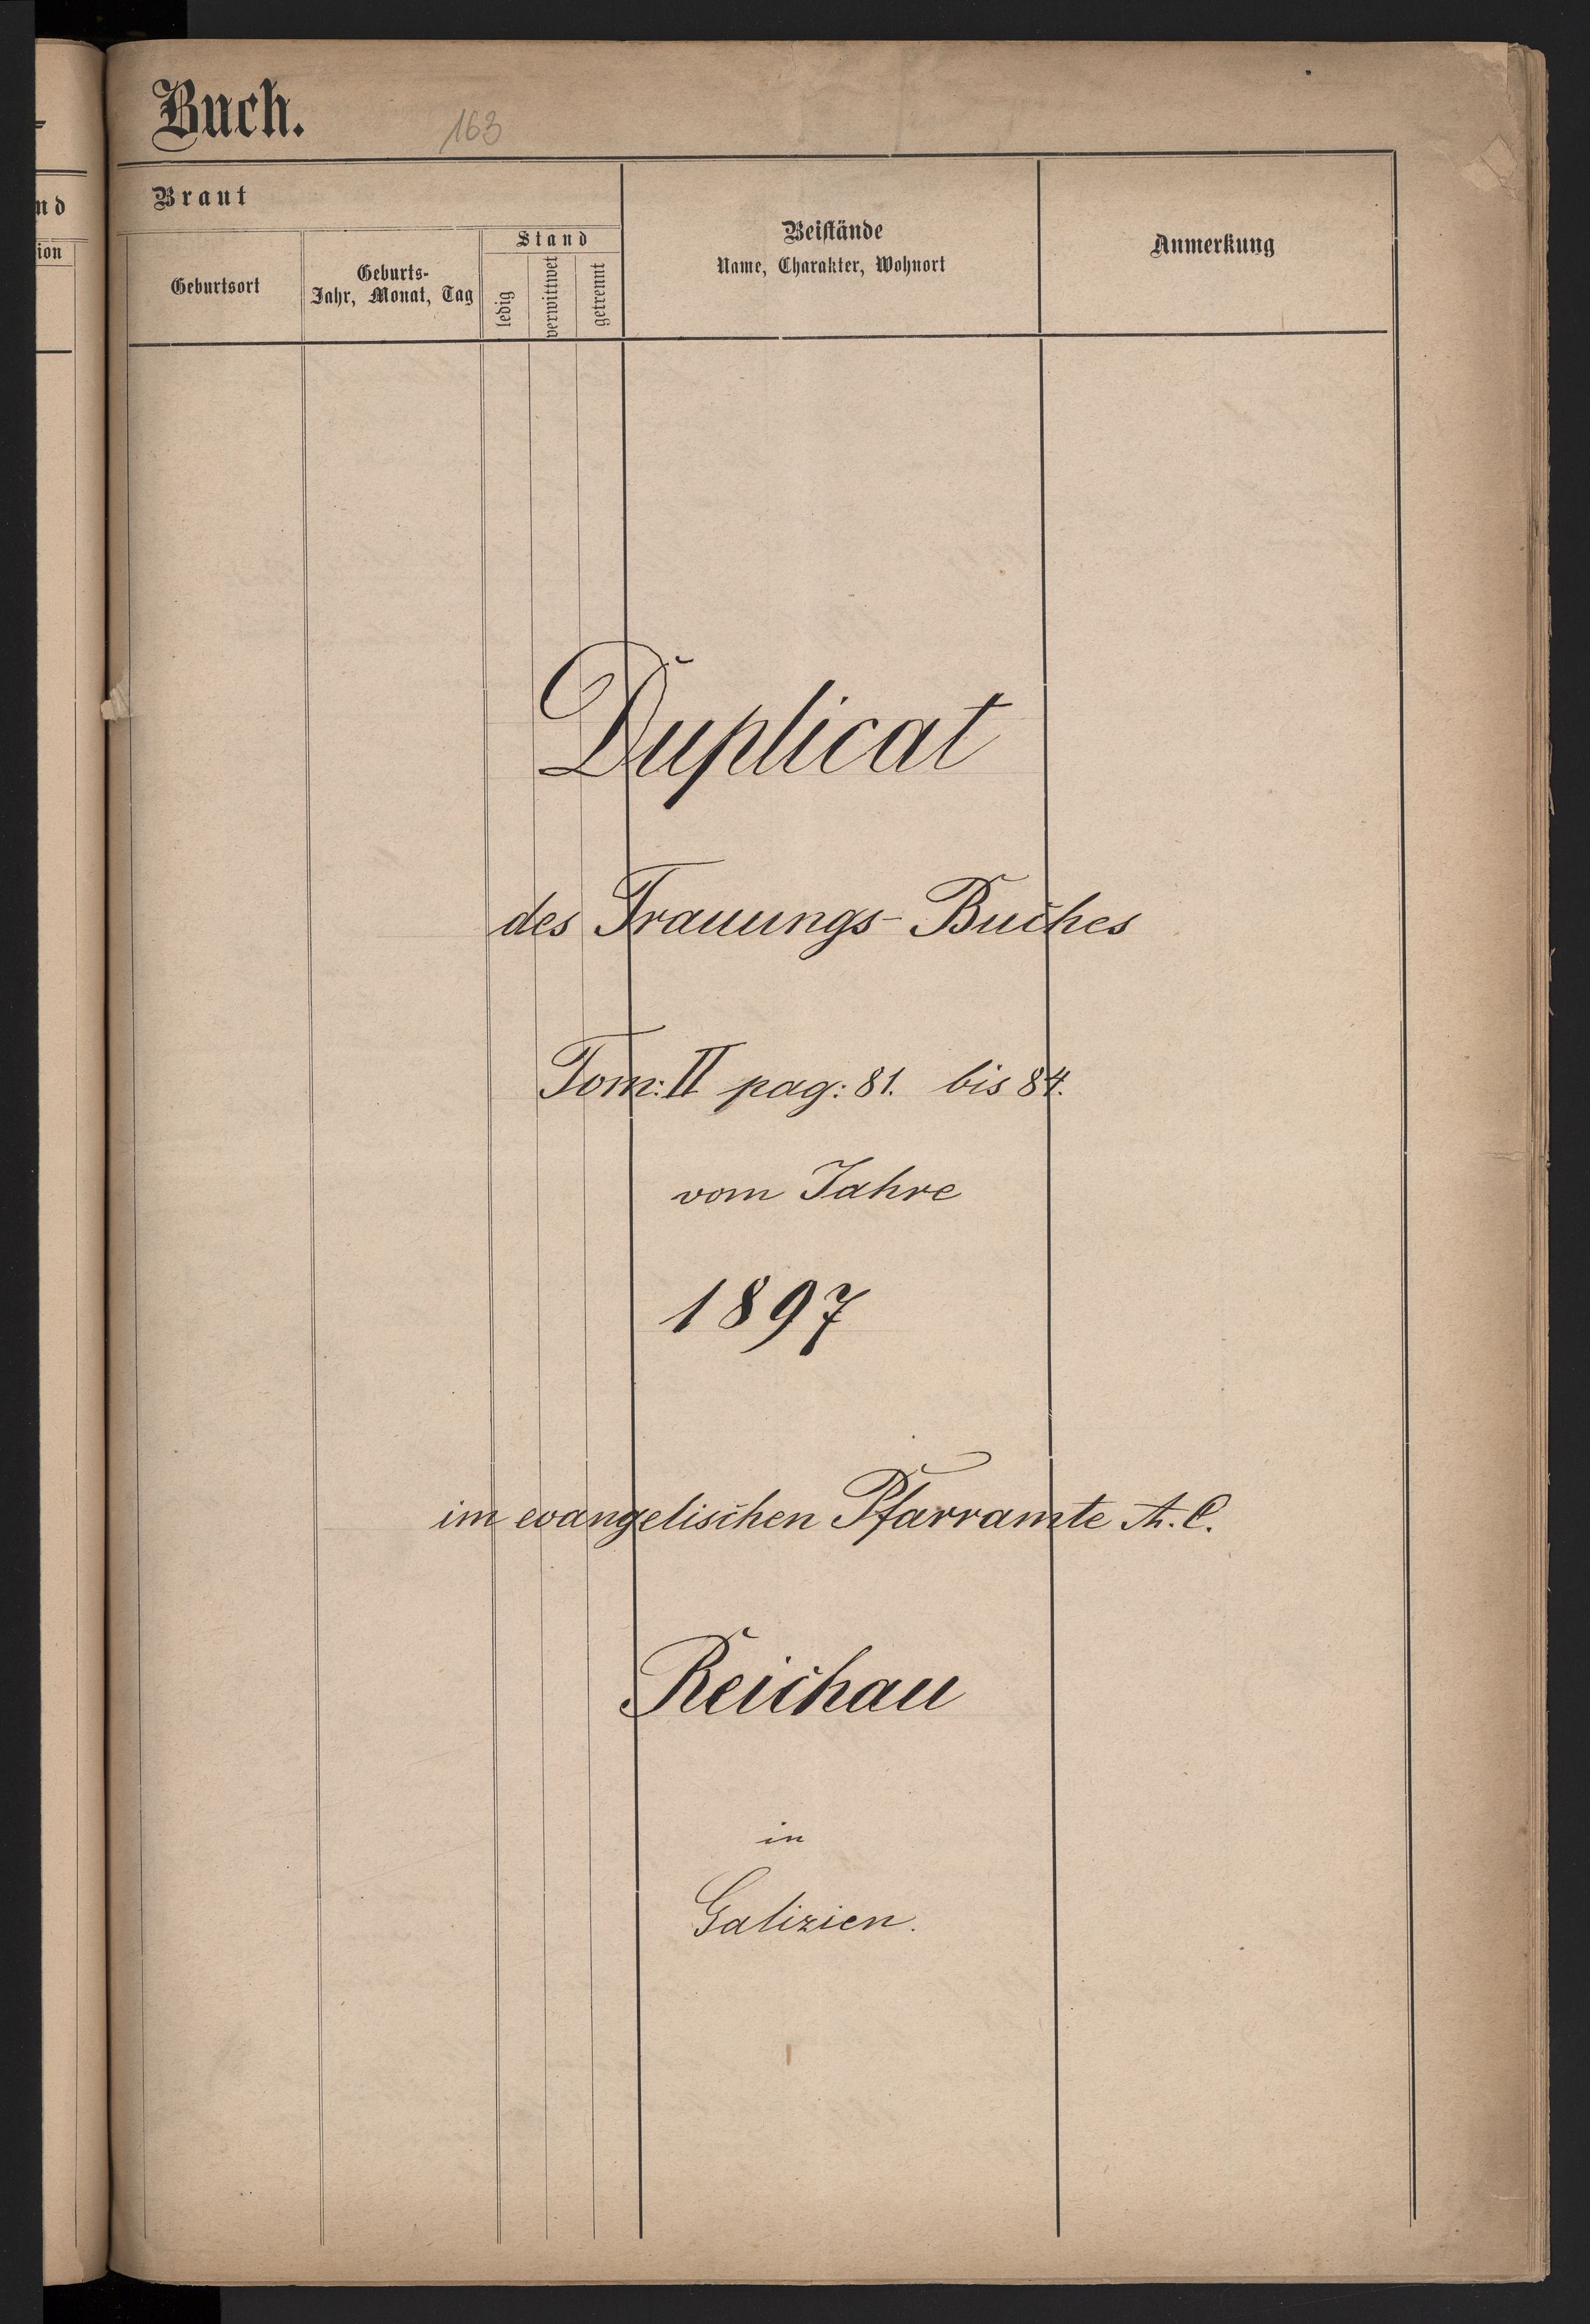 Buch.
163
nd
ion
Braut
Geburtsort
Geburts-
Jahr, Monat, Tag
Stand
ledig
verwittwet
getrennt
Beistände
Name, Charakter, Wohnort
Anmerkung
Duplicat
des Trauungs-Buches
Tom: II pag: 81. bis 84.
vom Jahre
1897
im evangelischen Pfarramte A. C.
Reichau
in
Galizien.